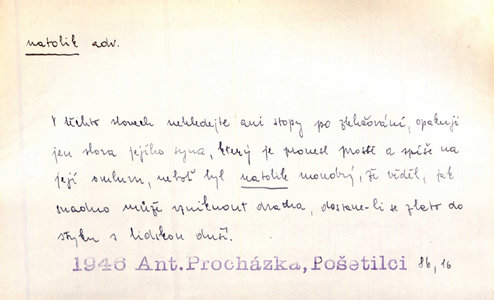 natolik adv.
V těchto slovech nehledejte ani stopy po zlehčování, opakuji
jen slova jejího syna, který je pronesl prostě a spíše na
její omluvu, neboť byl natolik moudrý, že věděl, jak
snadno může vzniknout vražda, dostane-li se zlato do
styku s lidskou duší.
1946 Ant.Procházka, Pošetilci 86, 16